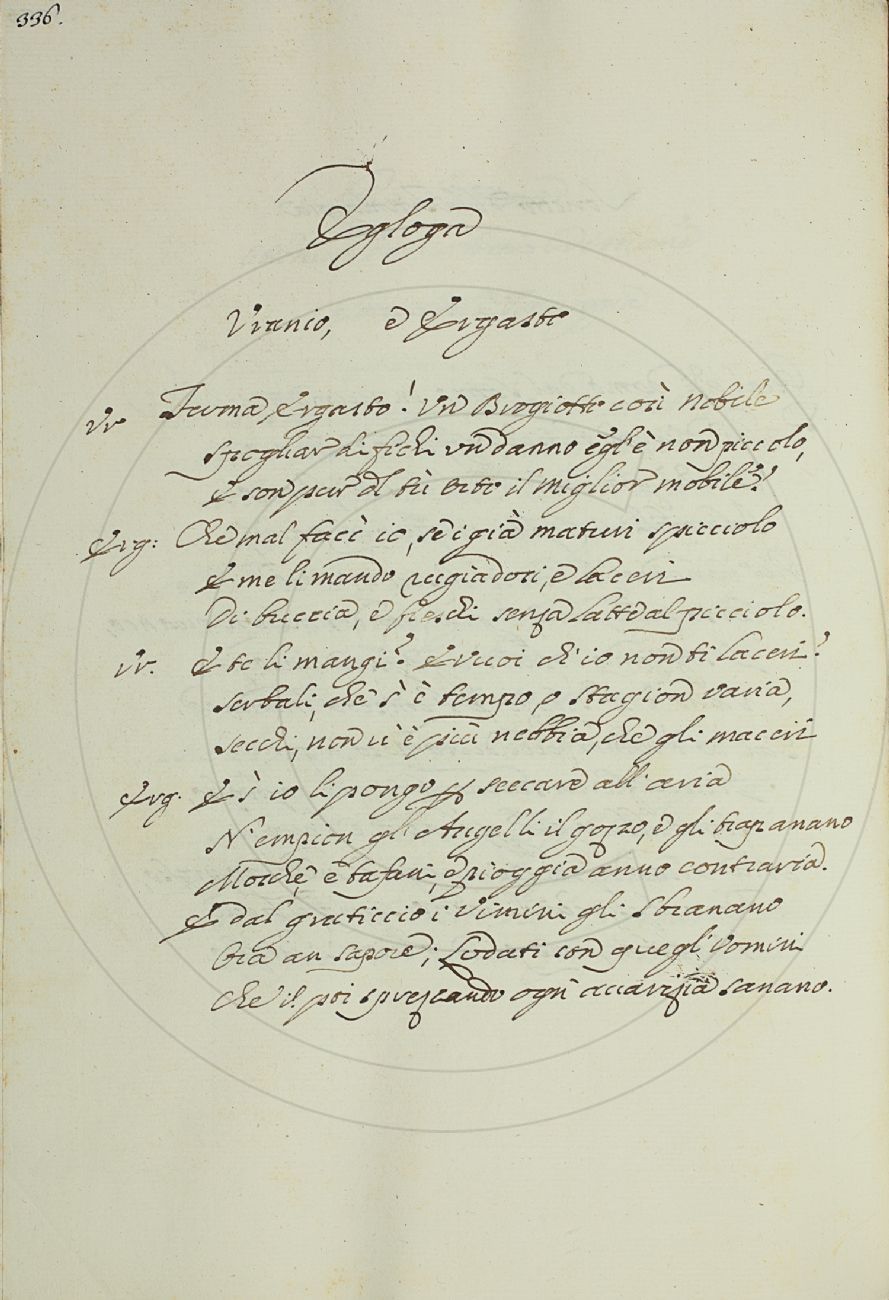 336.
Egloga
Uranio, e Ergasto
Ur Ferma, Ergasto! Un Brogiotto così nobile
Spogliar di fichi un danno egl'è non piccolo,
E son pur di tù vito il miglior mobile!
Erg: Che mal facc' io, se i già maturi spiccolo
E me li mando rugiadosi, e laceri
Di buccia, e freschi senza latte al picciolo.
Ur. E te li mangi? E vuoi ch'io non ti laceri?
Serbali, che s'è tempo, o stagion varia,
secchi, non v'è più nebbia, che gli maceri
Erg. E s' io li pongo p seccare all'aria
N'empion gl'Augelli il gozzo, e gli trapanano
Mosche, e tafani, e pioggia anno contraria.
E dal graticcio i Vimini gli sbranano
tra an sapore; Lodati con quegl'Uomini
Che il poi sprezzando ogn' accarizia sanano.